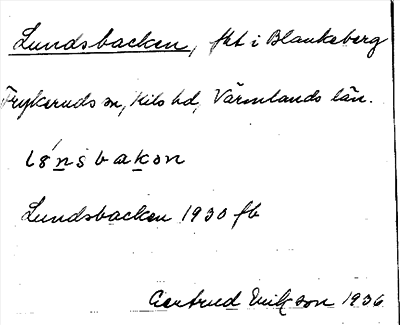 Lundsbacken, fkt i Blankeberg
Frykeruds sn, Kils hd, Värmlands län.
Lundsbacken 1930 fb
Gertrud Erikson 1936